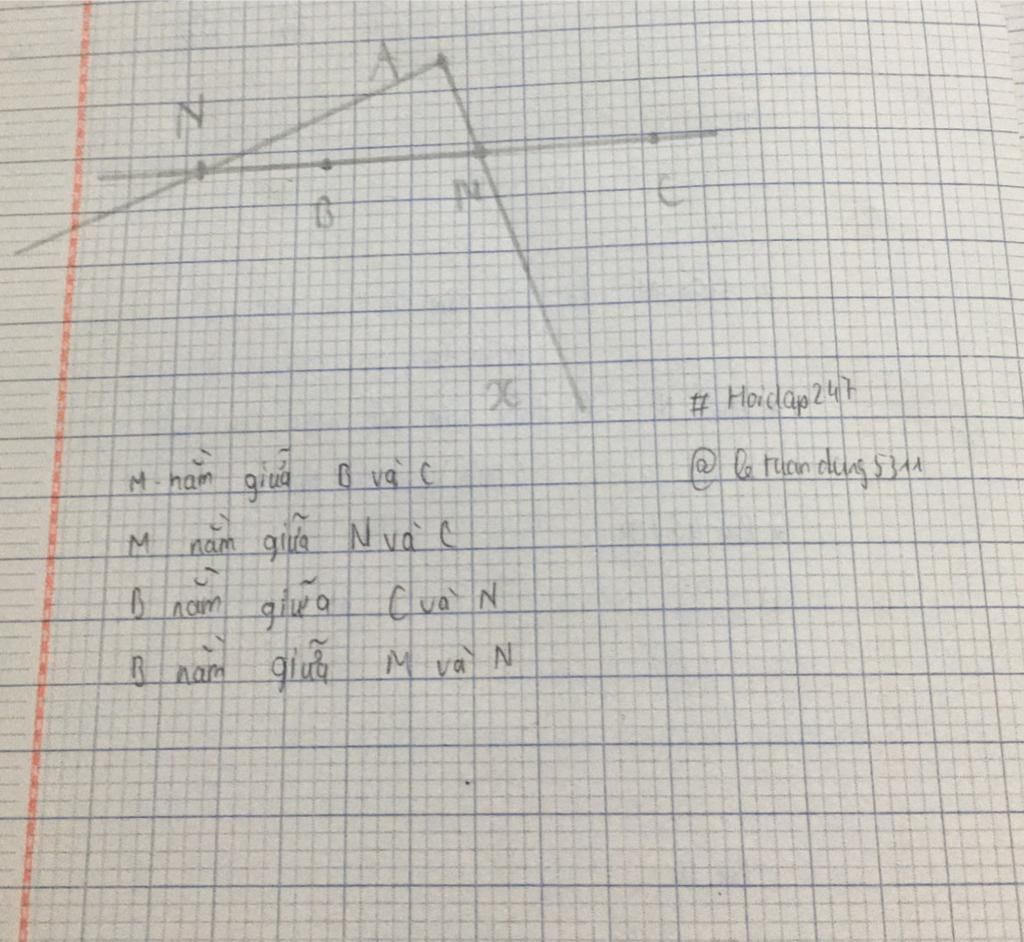 A
N
B
M
C
x
# Hoidap247
M nằm giữa B và C
@ letuandung5311
M nằm giữa N và C
B nằm giữa C và N
B nằm giữa M và N